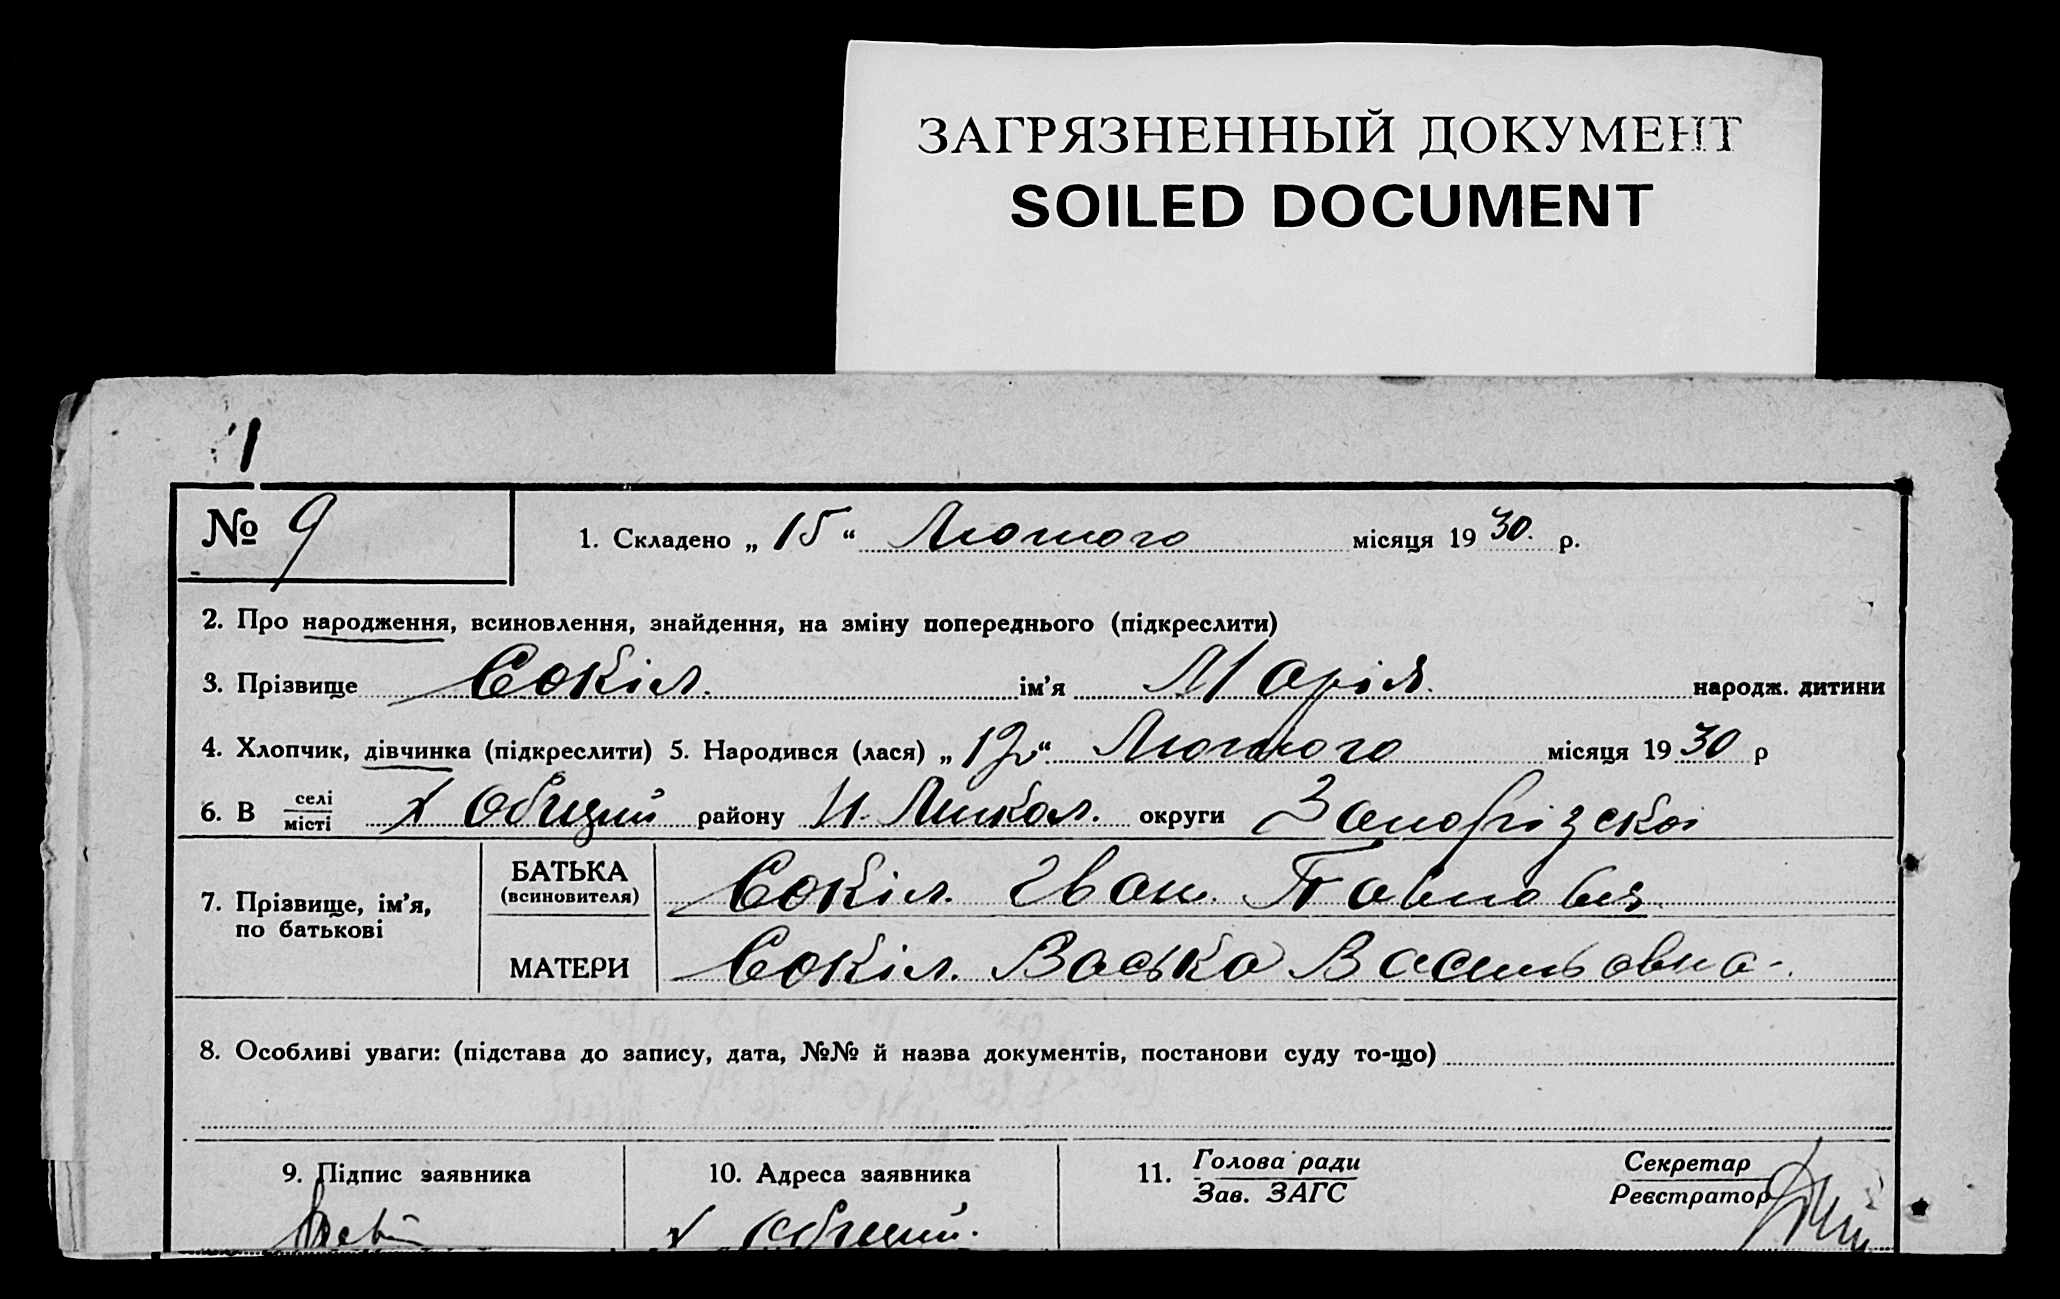 ЗАГРЯЗНЕННЫЙ ДОКУМЕНТ
SOILED DOCUMENT
1
№ 9
1. Складено „ 15 “ Лютого місяця 19 30. р.
2. Про народження, всиновлення, знайдення, на зміну попереднього (підкреслити)
3. Прізвище Сокіл. ім’я Марія. народж. дитини
4. Хлопчик, дівчинка (підкреслити) 5. Народився (лася) „ “ Лютого місяця 19 30 р
6. В селі місті х Общий району Н. Микол. округи Запорізскої
7. Прізвище, ім’я, по батькові
БАТЬКА (всиновителя) Сокіл. Іван. Павлович.
МАТЕРИ Сокіл. Васька Васильовна.
8. Особливі уваги: (підстава до запису, дата, №№ й назва документів, постанови суду то-що)
9. Підпис заявника 10. Адреса заявника 11. Голова ради Секретар
Зав. ЗАГС Реєстратор
х Общий.